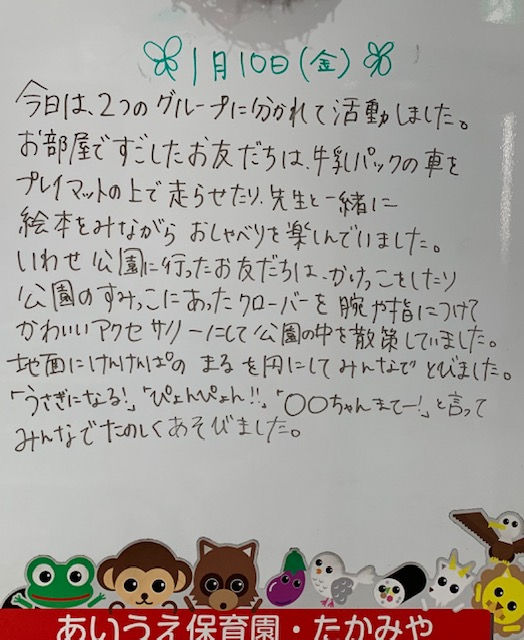 1月10日(金)
今日は、2つのグループに分かれて活動しました。
お部屋ですごしたお友だちは、牛乳パックの車を
プレイマットの上で走らせたり、先生と一緒に
絵本をみながらおしゃべりを楽しんでいました。
いわせ公園に行ったお友だちは、かけっこをしたり
公園のすみっこにあったクローバーを腕や指につけて
かわいいアクセサリーにして公園の中を散策していました。
地面にけんけんぱのまるを円にしてみんなでとびました。
「うさぎになる!」「ぴょんぴょん!!」、「〇〇ちゃんまてー!」と言って
みんなでたのしくあそびました。
あいうえ保育園・たかみや